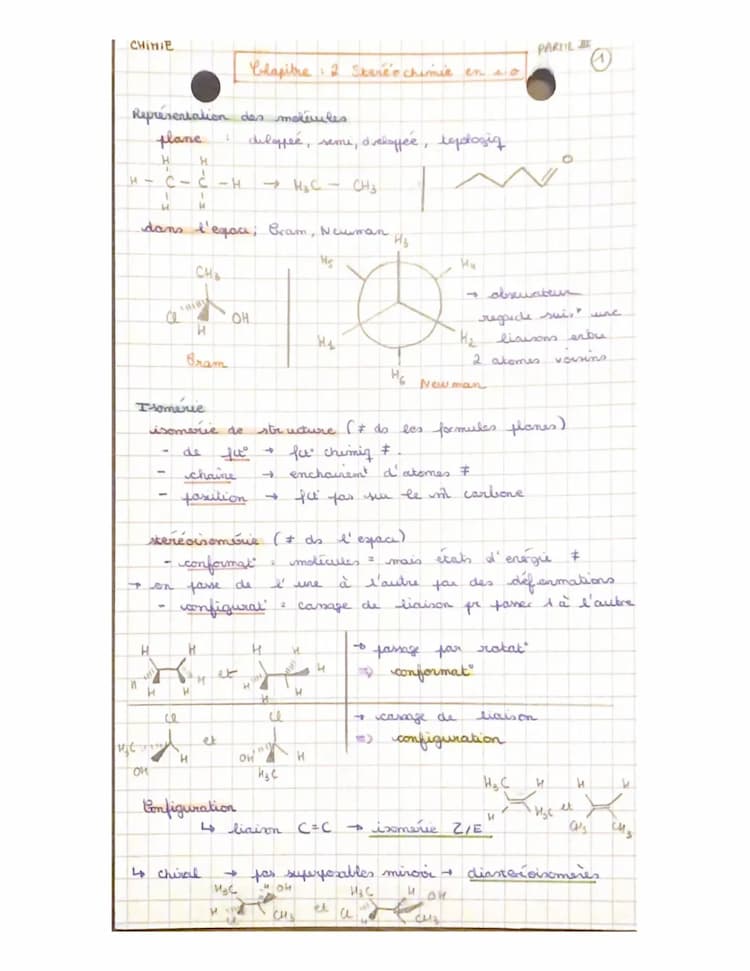 CHIMIE
PARTIE III
1
Chapitre : 2 Stéréochimie en c.o
Représentation des molécules
plane : dvloppée, semi, dveloppée, toplogiq
H H
H - C - C - H → H3C - CH3
O
H H
dans l'espace; Cram, Newman
H3
H5 H4
CH3
→ observateur
regarde suiv* une
liaisons entre
2 atomes voisins
Cl OH
H
H1 H2
Cram
H6
Newman
Isomérie
isomérie de structure (≠ ds les formules planes)
- de fct° → fct° chimiq ≠.
- chaine → enchainemt d'atomes ≠
- position → fct pas sur le m̂ carbone
stéréoisomérie (≠ ds l'espace)
- conformat° = molécules = mais états d'énergie ≠
→ on passe de l'une à l'autre par des déformations
- configurat° = cassage de liaison pr passer 1 à l'autre
H H H H
→ passage par rotat°
et H
⇒ conformat°
H H H H H
H
Cl Cl
→ cassage de liaison
H3C et
⇒ configuration
H OH H
OH H3C
H3C H H H
Configuration
H H3C et CH3 CH3
↳ liaison C=C → isomérie Z/E
↳ chiral → pas superposables miroir → diastéréoisomères
H3C H OH H3C H OH
H Cl CH3 et Cl CH3